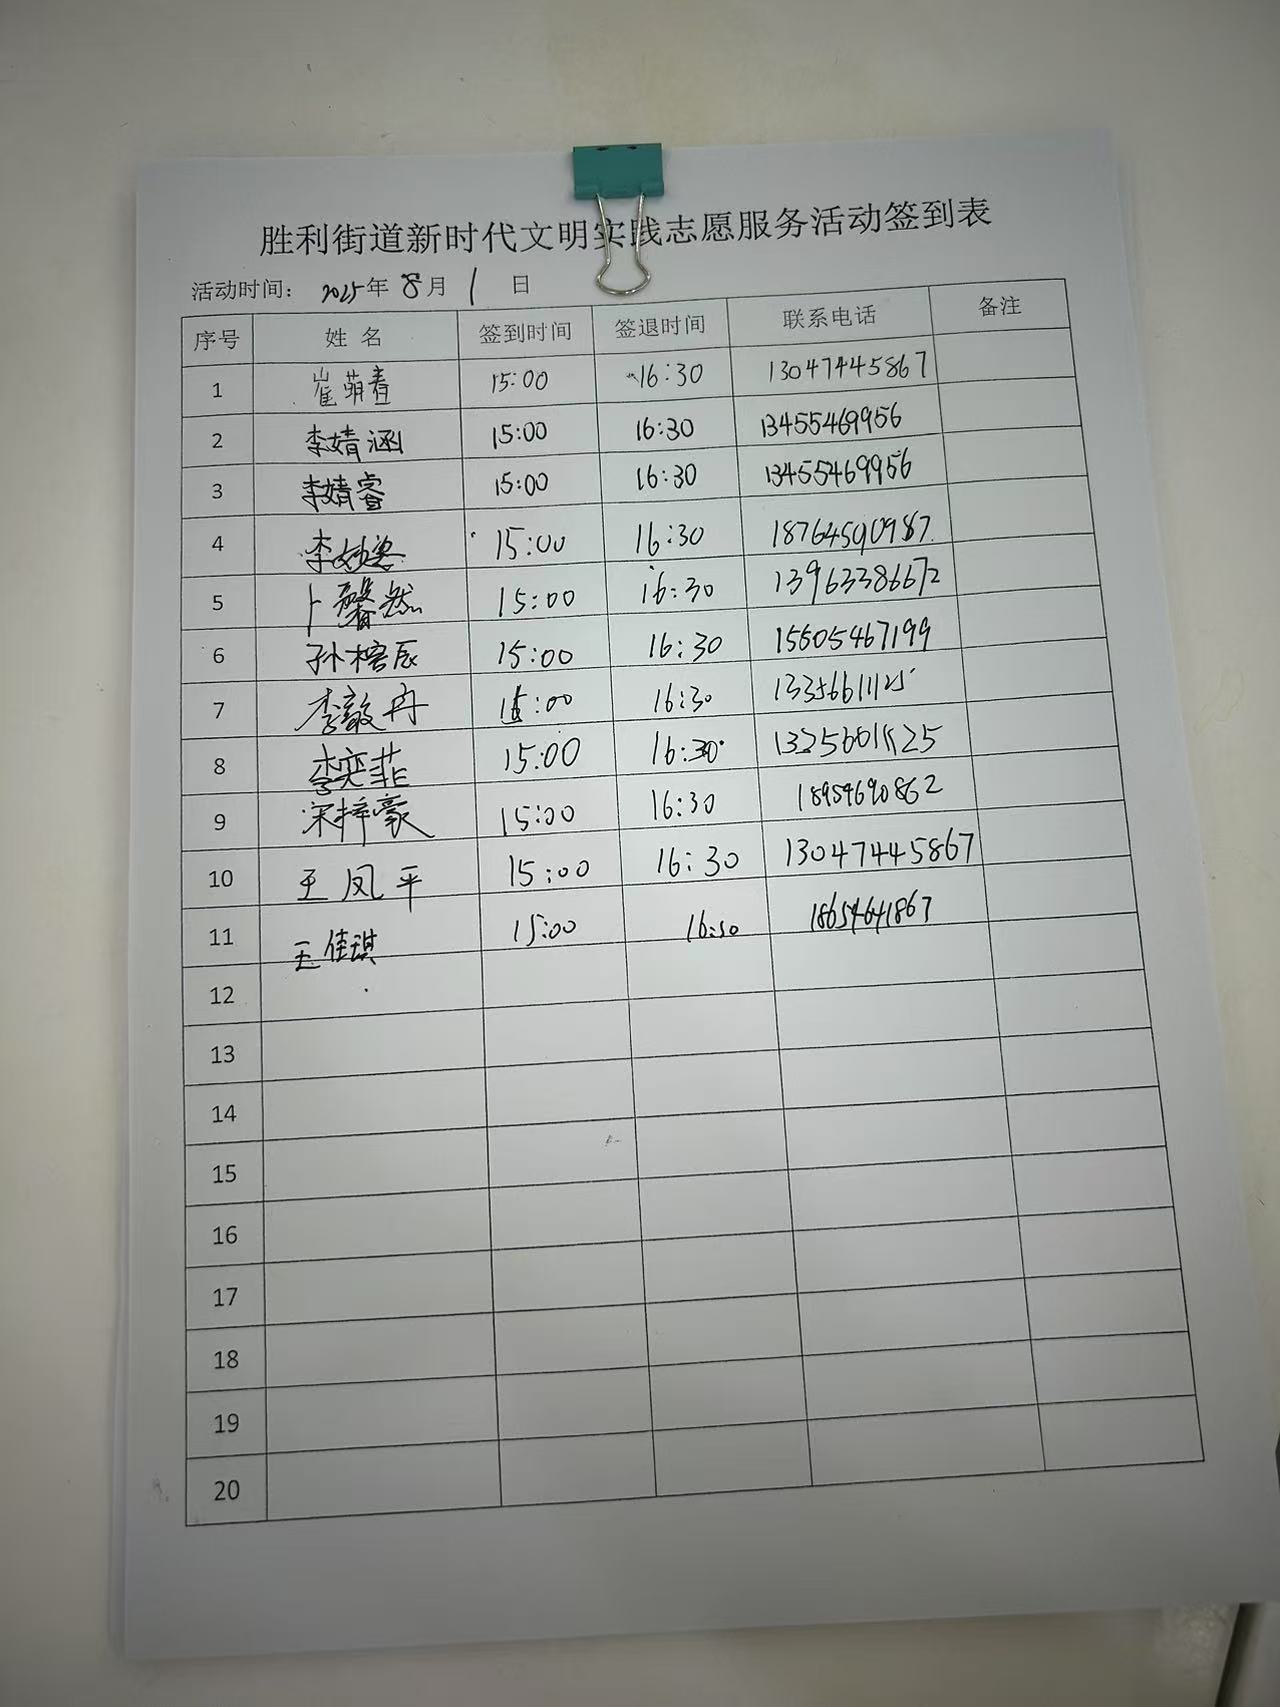 胜利街道新时代文明实践志愿服务活动签到表
活动时间： 2025年 8月 1 日
序号 姓名 签到时间 签退时间 联系电话 备注
1 崔萌春 15:00 16:30 13047445867
2 李婧涵 15:00 16:30 13455469956
3 李婧睿 15:00 16:30 13455469956
4 李 15:00 16:30 18764590987
5 卜馨然 15:00 16:30 13963386672
6 孙榕辰 15:00 16:30 15505467199
7 李 15:00 16:30
8 李奕菲 15:00 16:30
9 宋梓豪 15:00 16:30 18954690862
10 王凤平 15:00 16:30 13047445867
11 王佳琪 15:00 16:30 18654641867
12
13
14
15
16
17
18
19
20